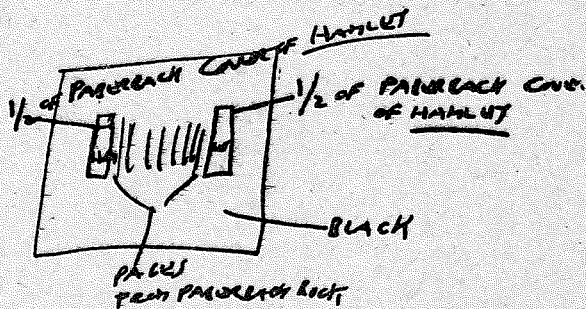 1/2 OF PAPERBACK COVER OF HAMLET
1/2 OF PAPERBACK COVER
OF HAMLET
BLACK
PAGES
FROM PAPERBACK BOOK